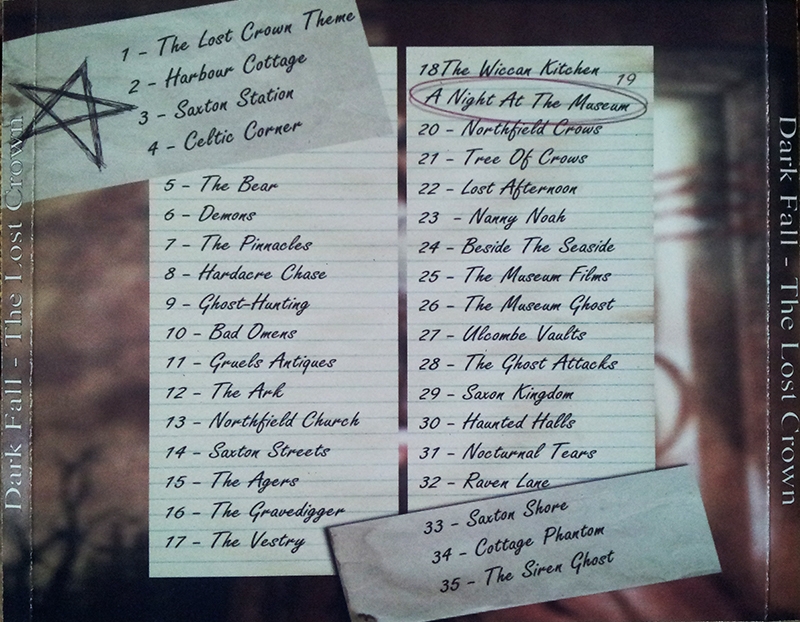 Dark Fall - The Lost Crown
1 - The Lost Crown Theme
2 - Harbour Cottage
3 - Saxton Station
4 - Celtic Corner
5 - The Bear
6 - Demons
7 - The Pinnacles
8 - Hardacre Chase
9 - Ghost-Hunting
10 - Bad Omens
11 - Gruels Antiques
12 - The Ark
13 - Northfield Church
14 - Saxton Streets
15 - The Agers
16 - The Gravedigger
17 - The Vestry
18The Wiccan Kitchen
19
A Night At The Museum
20 - Northfield Crows
21 - Tree Of Crows
22 - Lost Afternoon
23 - Nanny Noah
24 - Beside The Seaside
25 - The Museum Films
26 - The Museum Ghost
27 - Ulcombe Vaults
28 - The Ghost Attacks
29 - Saxon Kingdom
30 - Haunted Halls
31 - Nocturnal Tears
32 - Raven Lane
33 - Saxton Shore
34 - Cottage Phantom
35 - The Siren Ghost
Dark Fall - The Lost Crown